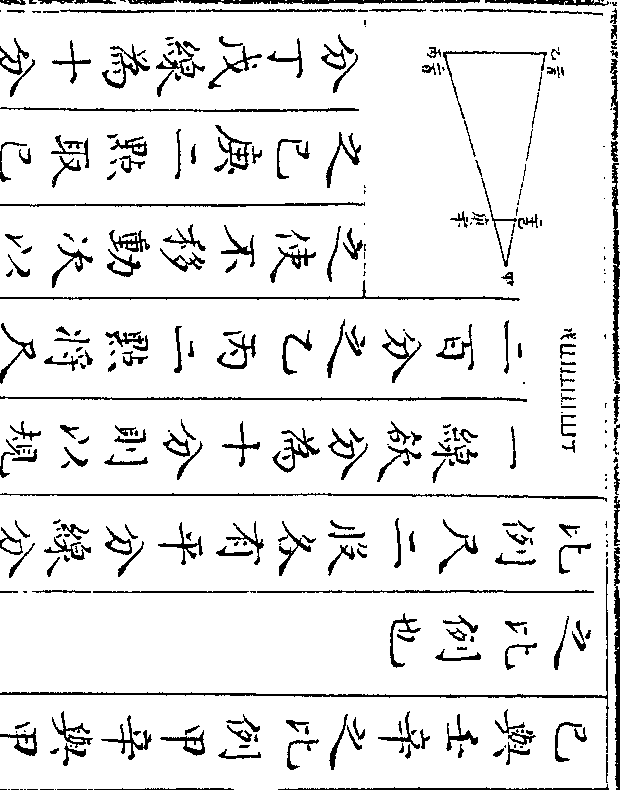 己與壬辛之比例甲辛與甲
之比例也
比例尺二股各有平分線分
一線欲分為十分則以規
二百分之乙丙二點將尺
之使不移動次以
之己庚二點取己
分丁戊線為十分
乙
二百
丙
二百
甲
戊
丁